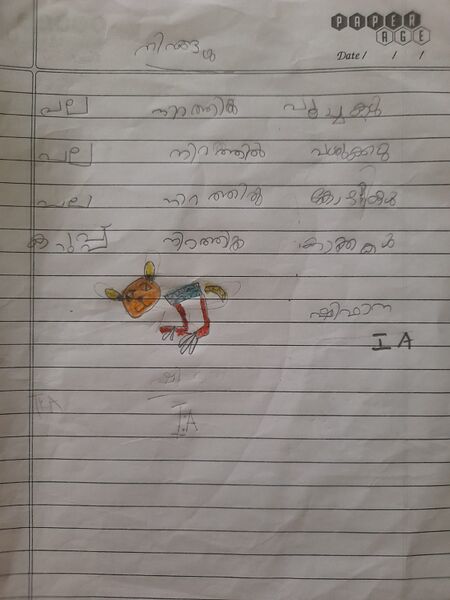 PAPER AGE
Date / / /
നിറങ്ങൾ
പല നിറത്തിൽ പൂച്ചകൾ
പല നിറത്തിൽ പശുക്കൾ
പല നിറത്തിൽ കോഴികൾ
കറുപ്പ് നിറത്തിൽ കാക്കകൾ
ഷിഫാന
I A
ഷി
I A
I A